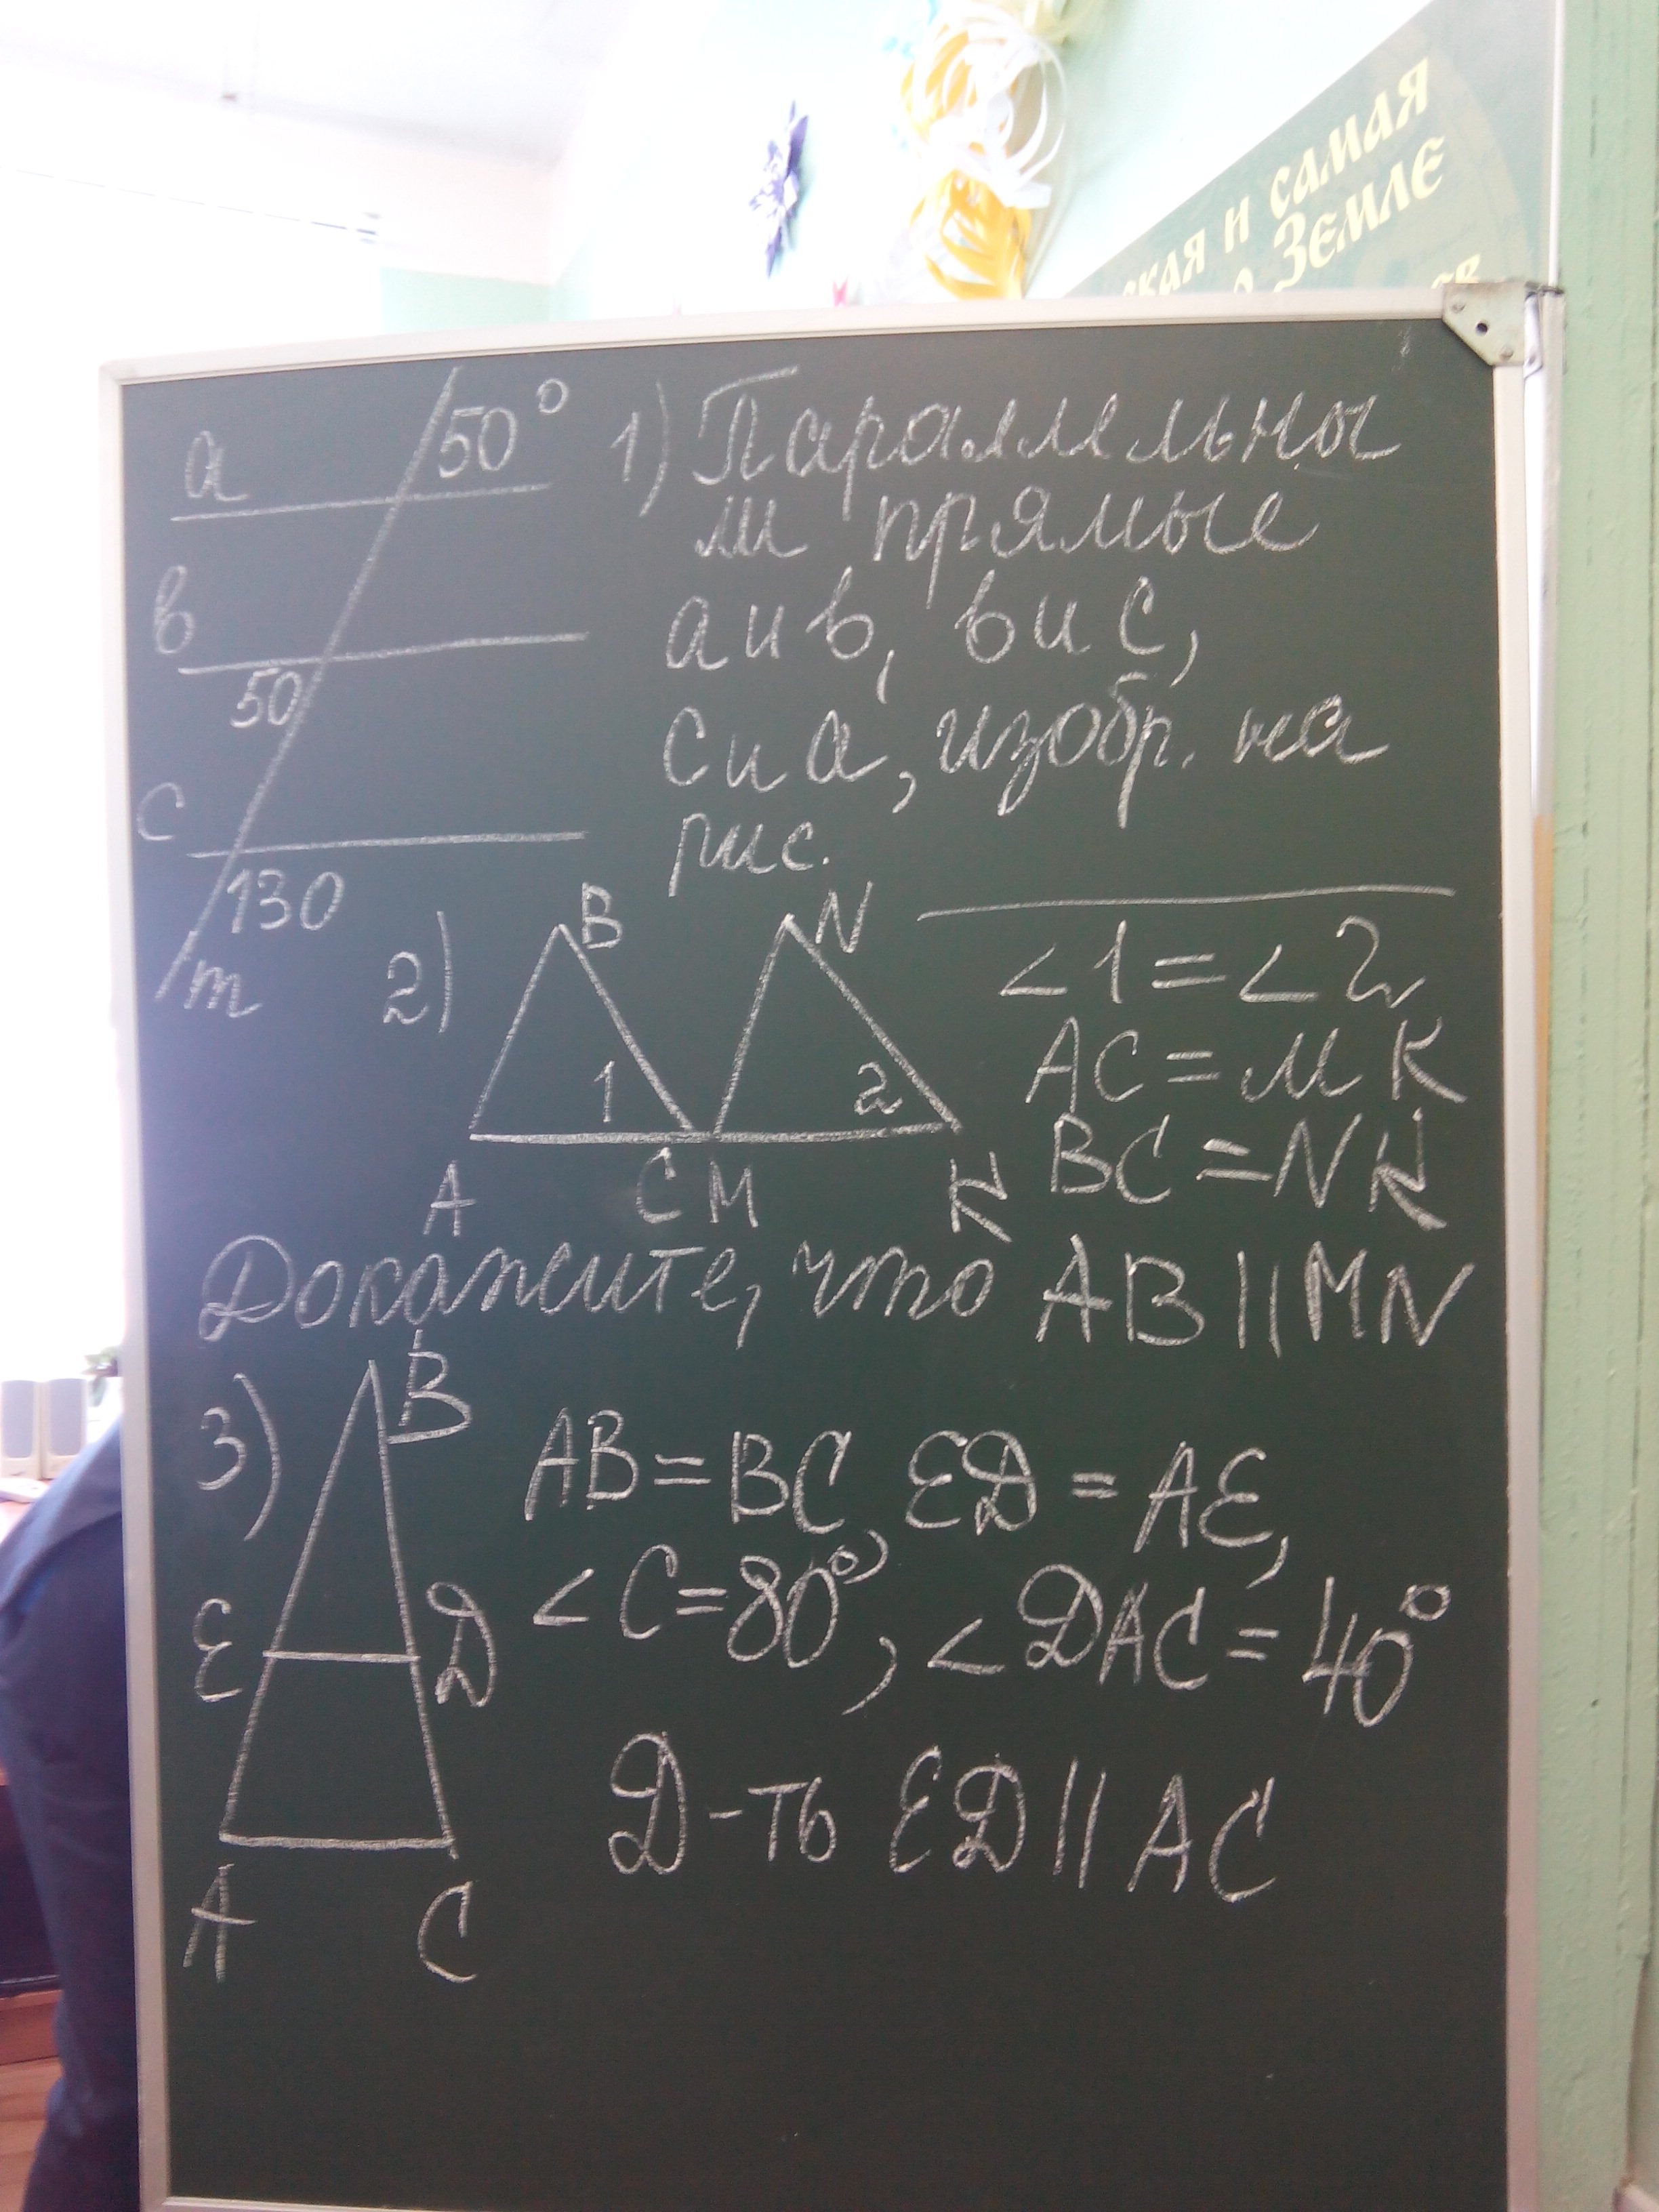 ская и самая
Земле
a
50°
b
50
c
130
m
1) Параллельны
ли прямые
a и b, b и c,
c и a, изобр. на
рис.
2)
B
N
1
2
A
C
M
K
<1=<2
AC=MK
BC=NK
Докажите, что AB||MN
3)
B
E
D
A
C
AB=BC, ED=AE,
<C=80°, <DAC=40°
Д-ть ED||AC